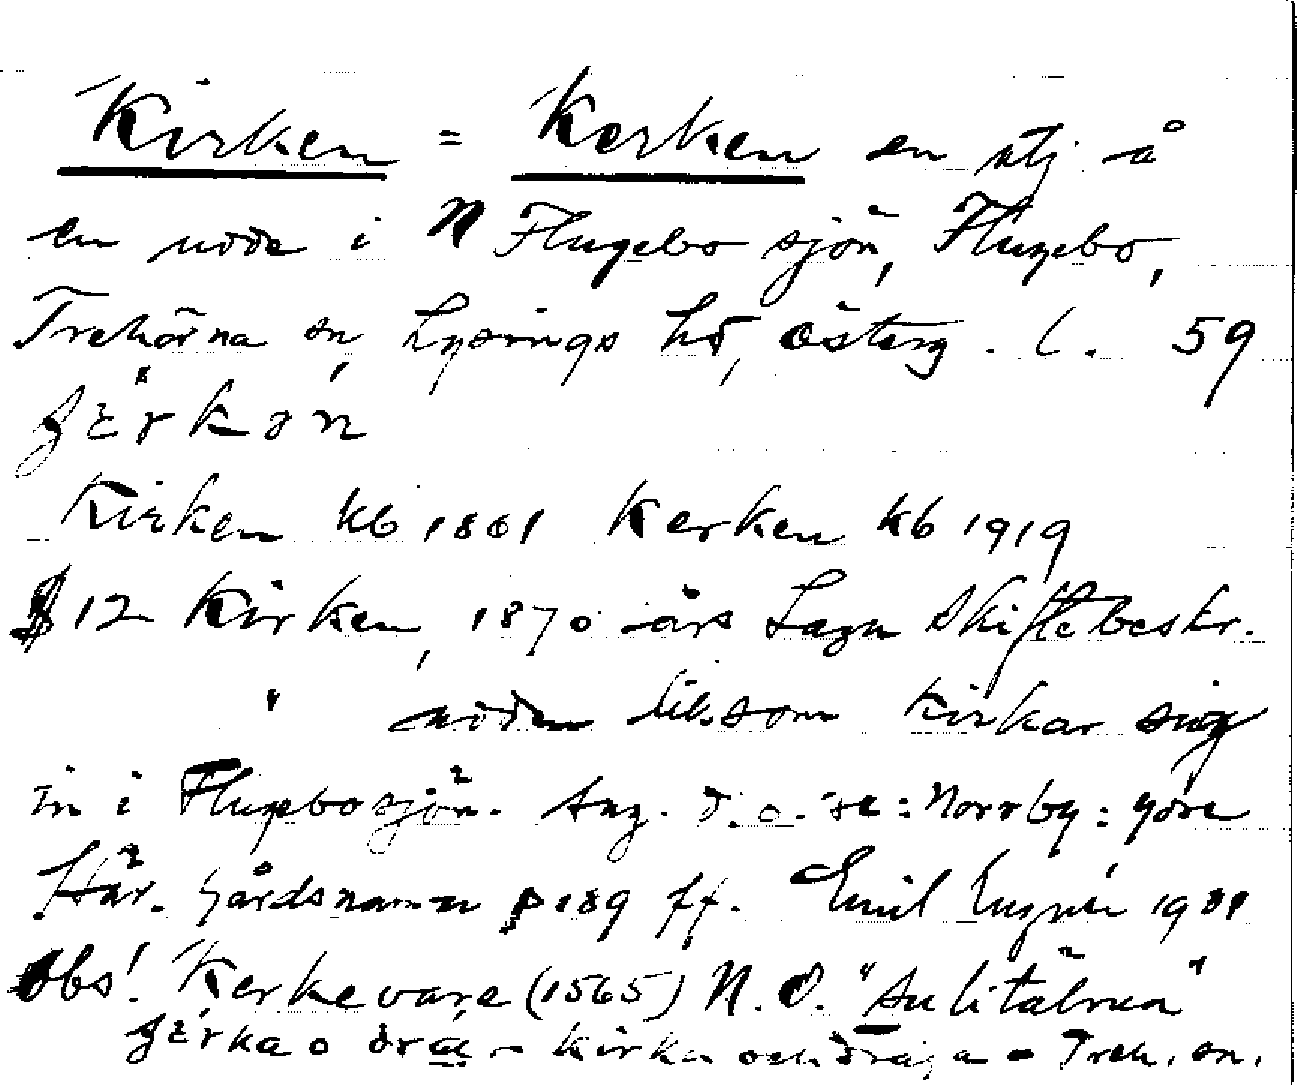 Kirken = Kerken en stj å
en udde i N Flugebo sjön, Flugebo,
Trehörna sn, Lysings hd, Österg. l. 59
Kirken kb 1861 Kerken kb 1919
§ 12 Kirken, 1870 års Laga Skiftebeskr.
" udden liksom kirkar sig
in i Flugebosjön. Ang. d. o. se: Norrby: Ydre
Här. Gårdsnamn p 189 ff. Emil 1981
Obs! Kerkevare (1565) N. O.
kirka och dräja = Treh. sn.